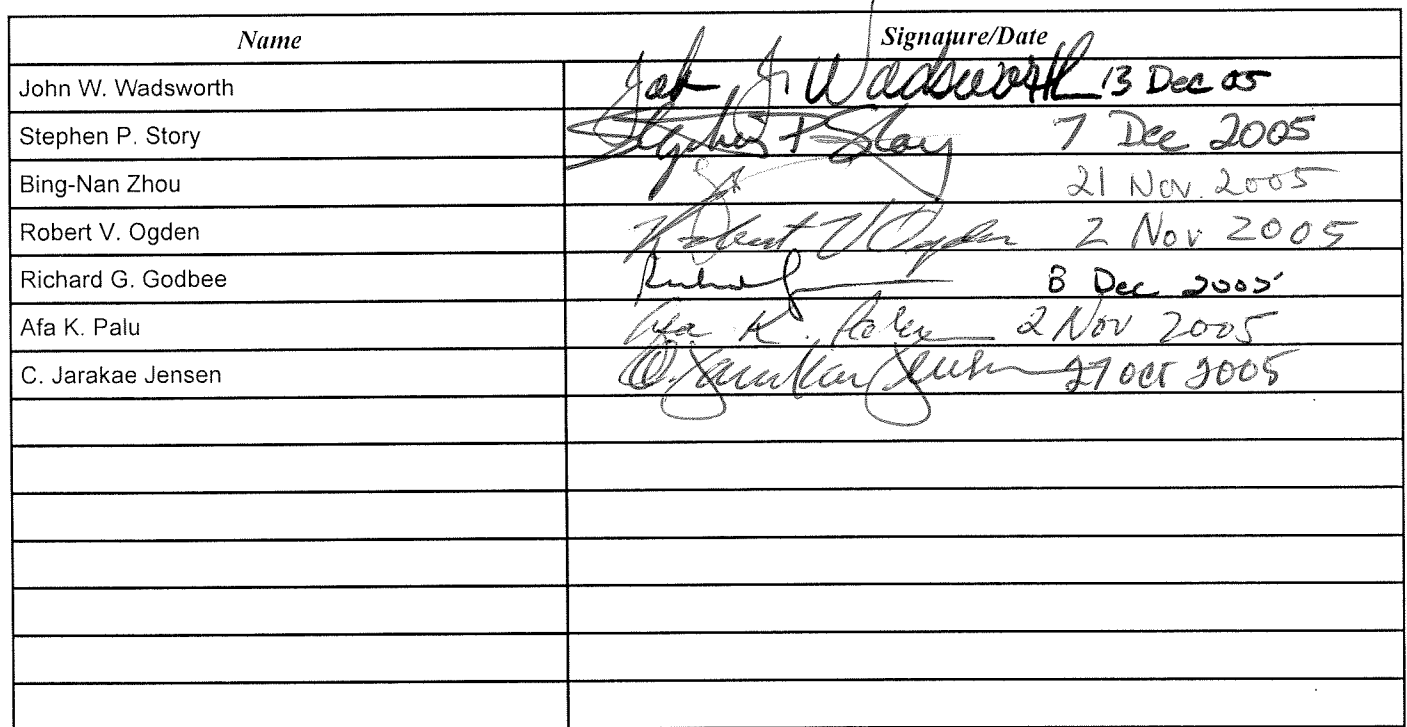 Name Signature/Date
John W. Wadsworth John J. Wadsworth 13 Dec 05
Stephen P. Story Stephen P. Story 7 Dec 2005
Bing-Nan Zhou 21 Nov. 2005
Robert V. Ogden Robert V Ogden 2 Nov 2005
Richard G. Godbee Richard 8 Dec 2005
Afa K. Palu Afa K. Palu 2 Nov 2005
C. Jarakae Jensen C. Jarakae Jensen 27 Oct 2005